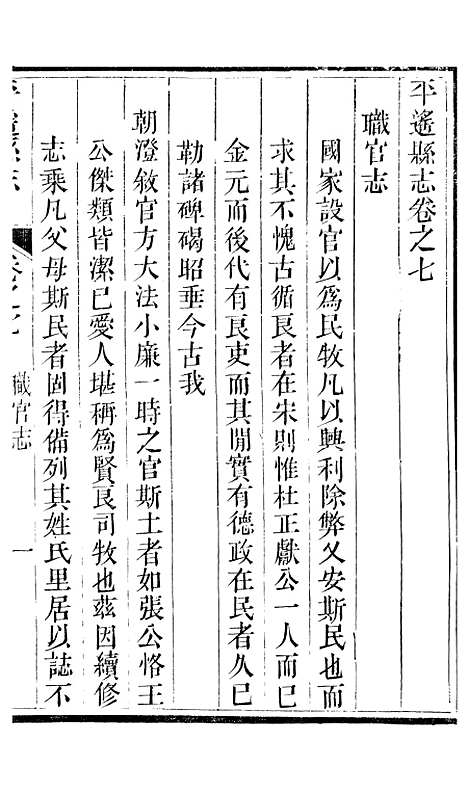 平遙縣志卷之七
職官志
國家設官以為民牧凡以興利除弊乂安斯民也而
求其不愧古循良者在宋則惟杜正獻公一人而已
金元而後代有良吏而其閒實有德政在民者久已
勒諸碑碣昭垂今古我
朝澄敘官方大法小廉一時之官斯土者如張公恪王
公傑類皆潔已愛人堪稱為賢良司牧也茲因續修
志乘凡父母斯民者固得備列其姓氏里居以誌不
平遙縣志 卷之七 職官志 一